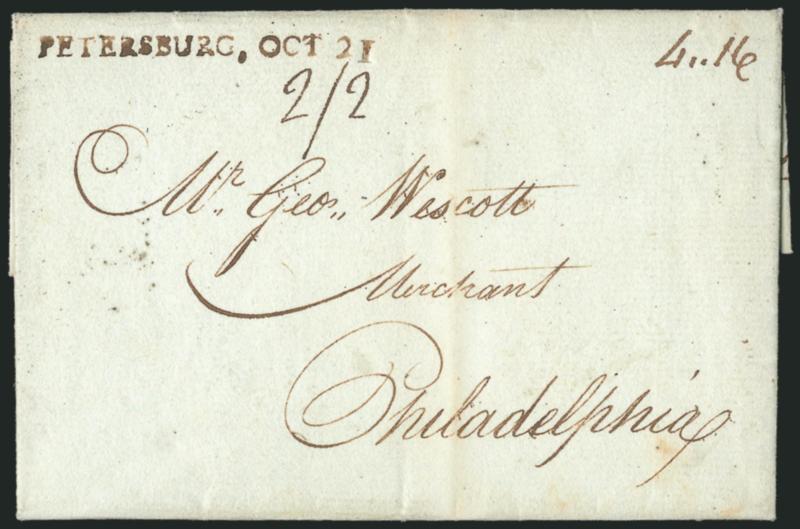 PETERSBURG, OCT 21
4..16
2/2
Mr. Geo.. Wescott
Merchant
Philadelphia